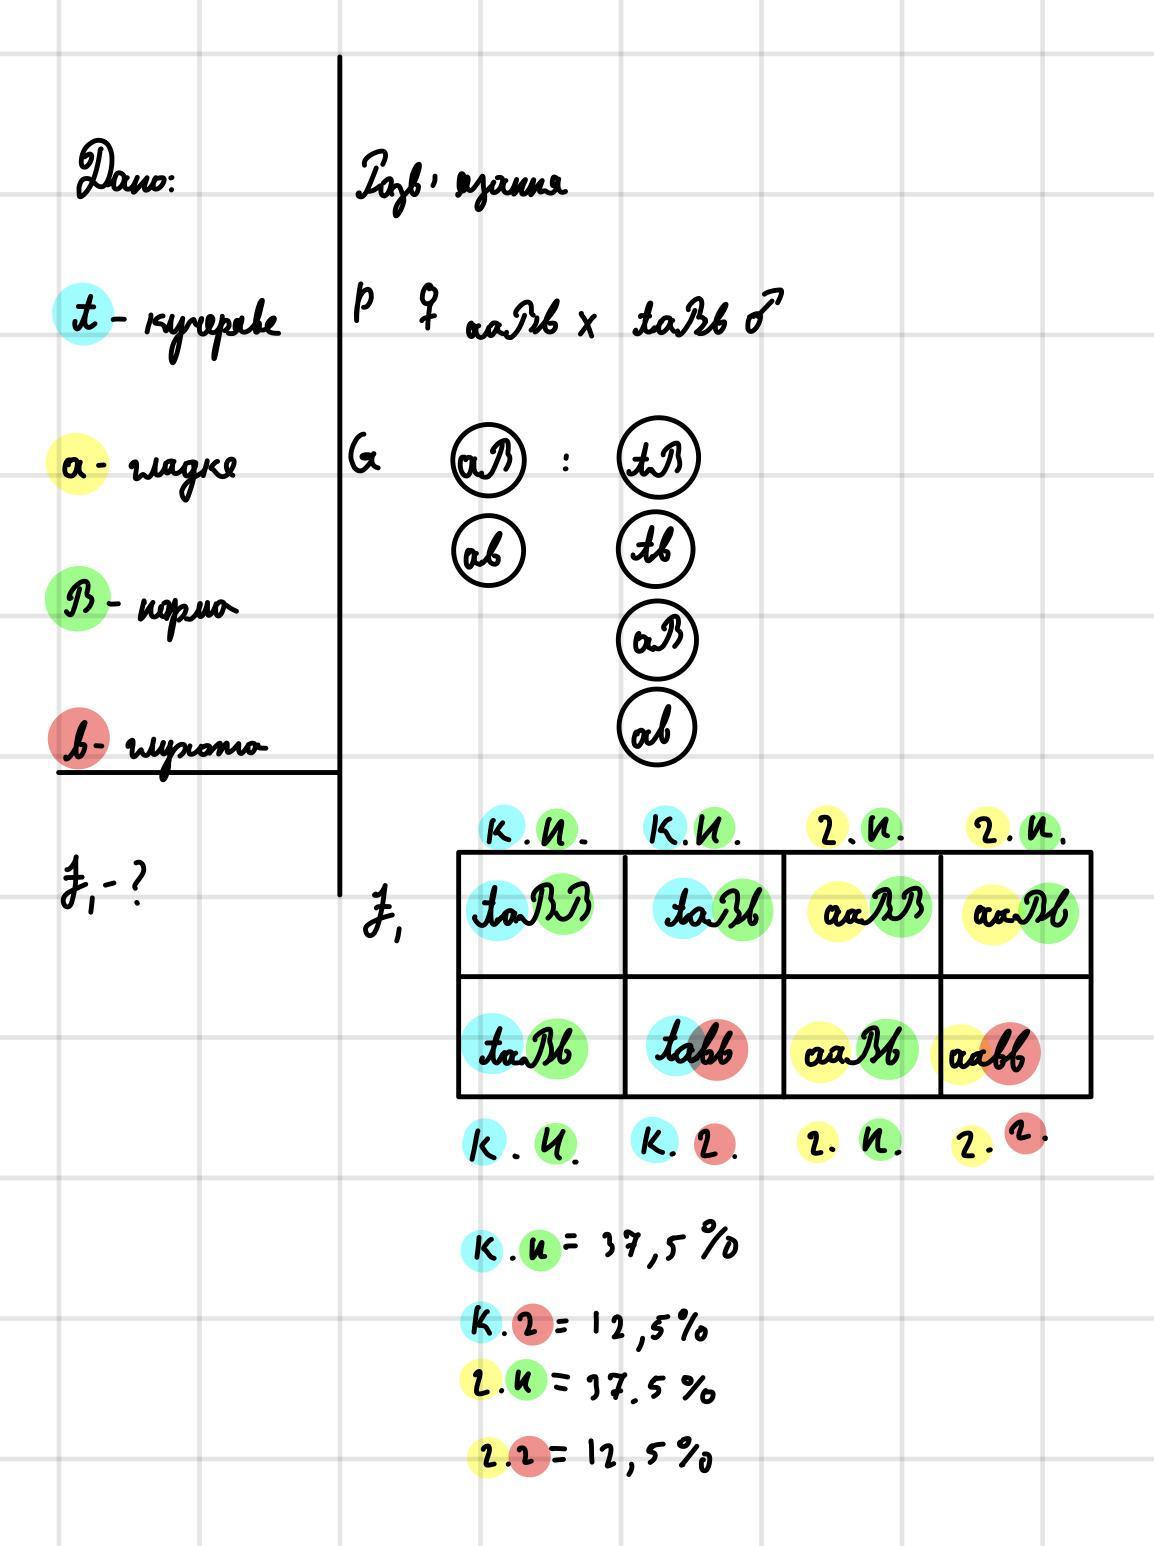 Дано:
t - кучеряве
a - гладке
B - норма
b - глухота
F₁ - ?
Розв'язання
P ♀ aaBb x taBb ♂
G aB : tB
ab tb
aB
ab
к.н. к.н. г.н. г.н.
F₁ taBB taBb aaBB aaBb
taBb tabb aaBb aabb
к.н. к.г. г.н. г.г.
к.н = 37,5%
к.г = 12,5%
г.н = 37.5%
г.г = 12,5%